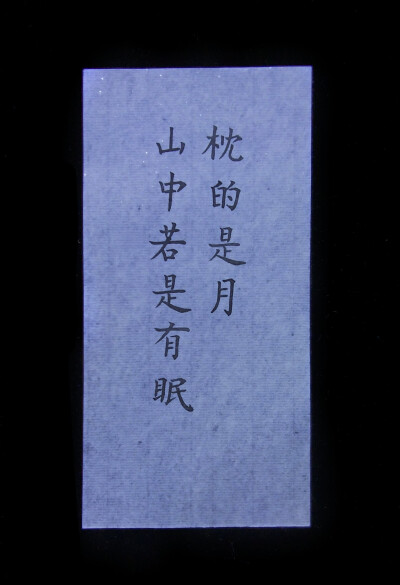 枕的是月
山中若是有眠